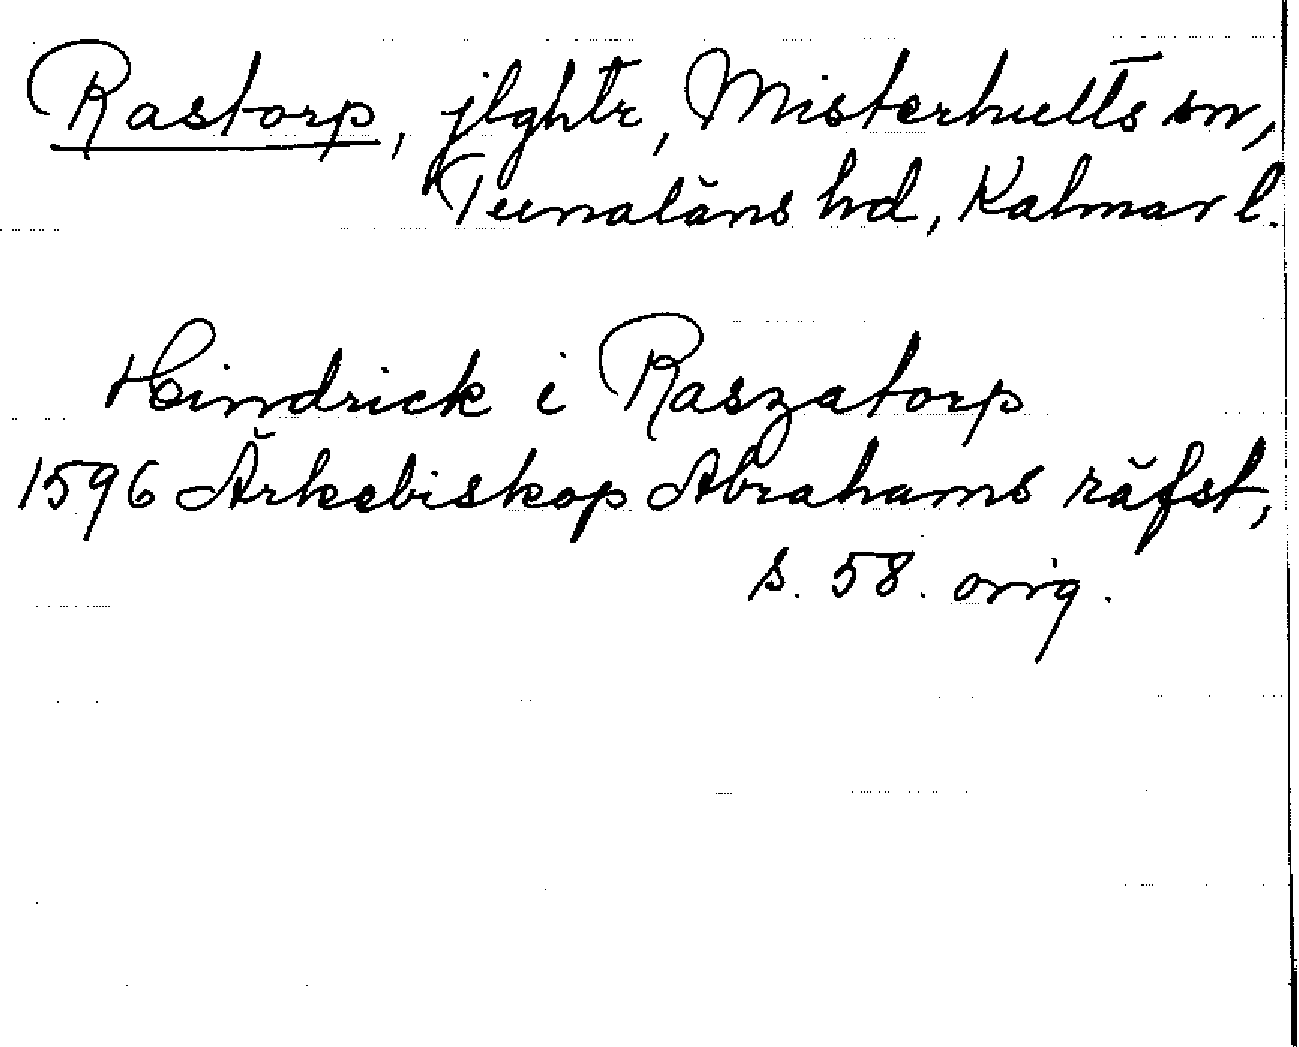 Rastorp, jlghtr, Misterhults sn,
Tunaläns hd, Kalmar l.
Hindrick i Raszatorp
1596 Ärkebiskop Abrahams räfst,
s. 58. orig.